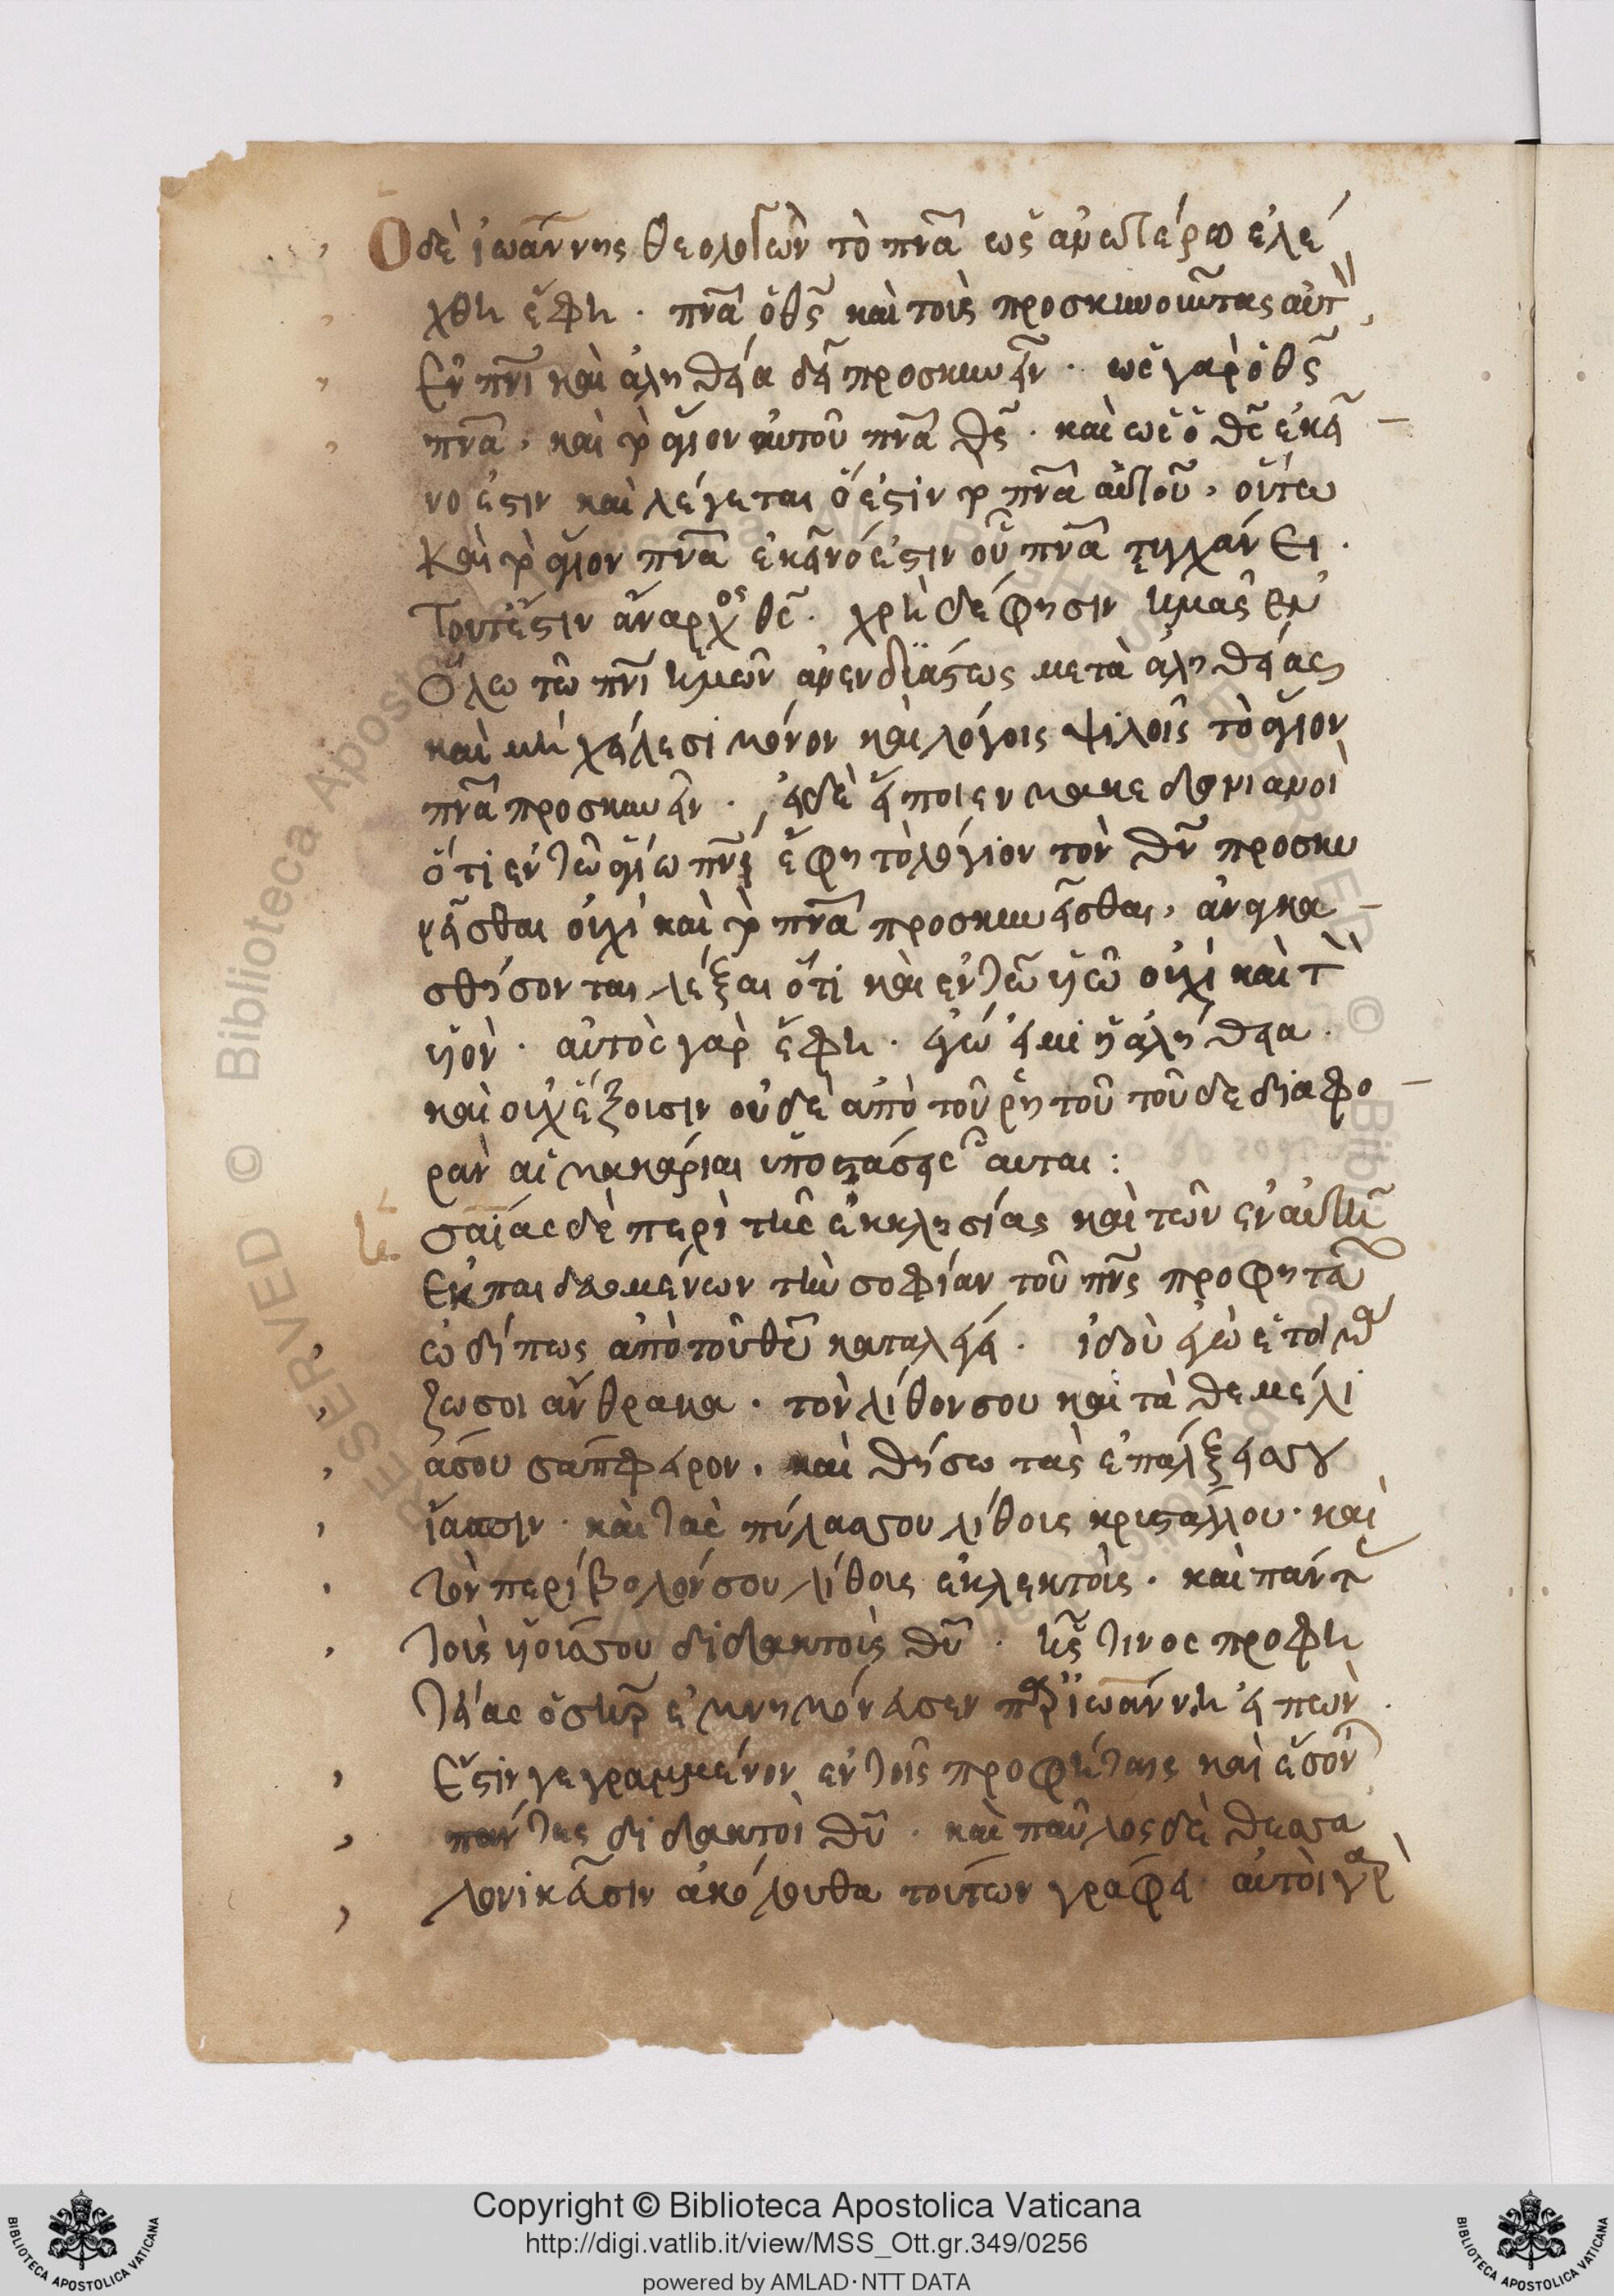 Ὁ δὲ ἰωάννης θεολογῶν τὸ πνα ὡς ἀνωτέρω ἐλέ
χθη ἔφη · πνα ὁ θς καὶ τοὺς προσκυνοῦντας αὐτ
ἐν πνι καὶ ἀληθεία δεῖ προσκυνεῖν · ὡς γὰρ ὁ θς
πνα, καὶ τὸ ἅγιον αὐτοῦ πνα θς · καὶ ὡς ὁ θς ἐκεῖ
νό ἐστιν καὶ λέγεται ὅ ἐστιν τὸ πνα αὐτοῦ, οὕτω
καὶ τὸ ἅγιον πνα ἐκεῖνό ἐστιν οὗ πνα τυγχάνει ·
Τουτέστιν ἄναρχος θς · χρὴ δέ φησιν ἡμᾶς ἐν
ὅλω τῶ πνι ἡμῶν ἀνενδϊάστως μετὰ ἀληθείας
καὶ μὴ χείλεσι μόνον καὶ λόγοις ψιλοῖς τὸ ἅγιον
πνα προσκυνεῖν · εἰ δὲ εἴποιεν μακεδονιανοὶ
ὅτι ἐν τῶ ἁγίω πνι ἔφη τὸ λόγιον τὸν θν προσκυ
νεῖσθαι οὐχὶ καὶ τὸ πνα προσκυνεῖσθαι, ἀναγκα
σθήσονται λέξαι ὅτι καὶ ἐν τῶ υἱῶ οὐχὶ καὶ τ
υἱὸν · αὐτὸς γὰρ ἔφη · ἐγώ εἰμι ἡ ἀλήθεια ·
καὶ οὐχ ἕξουσιν οὐδὲ ἀπὸ τοῦ ῥητοῦ τοῦδε διαφο
ρὰν αἱ μακάριαι ὑποστάσεις αὗται :
σαΐας δὲ περὶ τῆς ἐκκλησίας καὶ τῶν ἐν αὐτῆ
ἐκπαιδευμένων τὴν σοφίαν τοῦ πνς προφητεῖ
ὧδή πως ἀπὸ τοῦ θυ καταλέγει · ἰδοὺ ἐγὼ ἑτοιμά
ζω σοι ἄνθρακα · τὸν λίθον σου καὶ τὰ θεμέλι
ά σου σάπφειρον · καὶ θήσω τὰς ἐπάλξεις σου
ἴασπιν · καὶ τὰς πύλας σου λίθοις κρυστάλλου · καὶ
τὸν περίβολόν σου λίθοις ἐκλεκτοῖς · καὶ πάντ
τοὺς υἱούς σου διδακτοὺς θυ · ἧς τινος προφη
τείας ὁ σηρ ἐμνημόνευσεν παρ ϊωάννη εἰπὼν ·
ἔστιν γεγραμμένον ἐν τοῖς προφήταις καὶ ἔσον
πάντες διδακτοὶ θυ · καὶ παῦλος δὲ θεσσα
λονικεῦσιν ἀκόλουθα τούτων γράφει · αὐτοὶ γὰρ
Copyright © Biblioteca Apostolica Vaticana
http://digi.vatlib.it/view/MSS_Ott.gr.349/0256
powered by AMLAD·NTT DATA
BIBLIOTECA APOSTOLICA VATICANA
BIBLIOTECA APOSTOLICA VATICANA